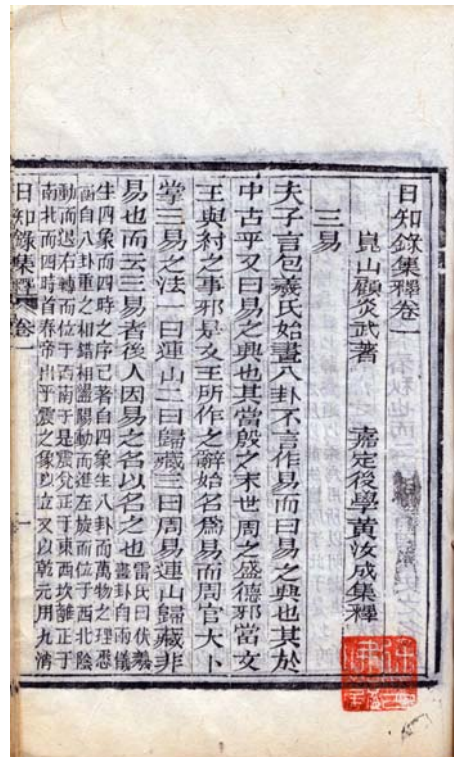 日知錄集釋卷一
崑山顧炎武著 嘉定後學黃汝成集釋
三易
夫子言包羲氏始畫八卦不言作易而曰易之興也其於
中古乎又曰易之興也其當殷之末世周之盛德邪當文
王與紂之事邪是文王所作之辭始名爲易而周官大卜
掌三易之法一曰連山二曰歸藏三曰周易連山歸藏非
易也而云三易者後人因易之名以名之也
雷氏曰伏羲
畫卦自兩儀
生四象而四時之序已著自四象生八卦而萬物之理悉
函自八卦重之相錯相盪陽動而進左旋而位于西北陰
動而退右轉而位于西南于是震兌正于東西坎離正于
南北而四時首春帝出乎震之象以立又以乾元用九消
日知錄集釋 卷一 一